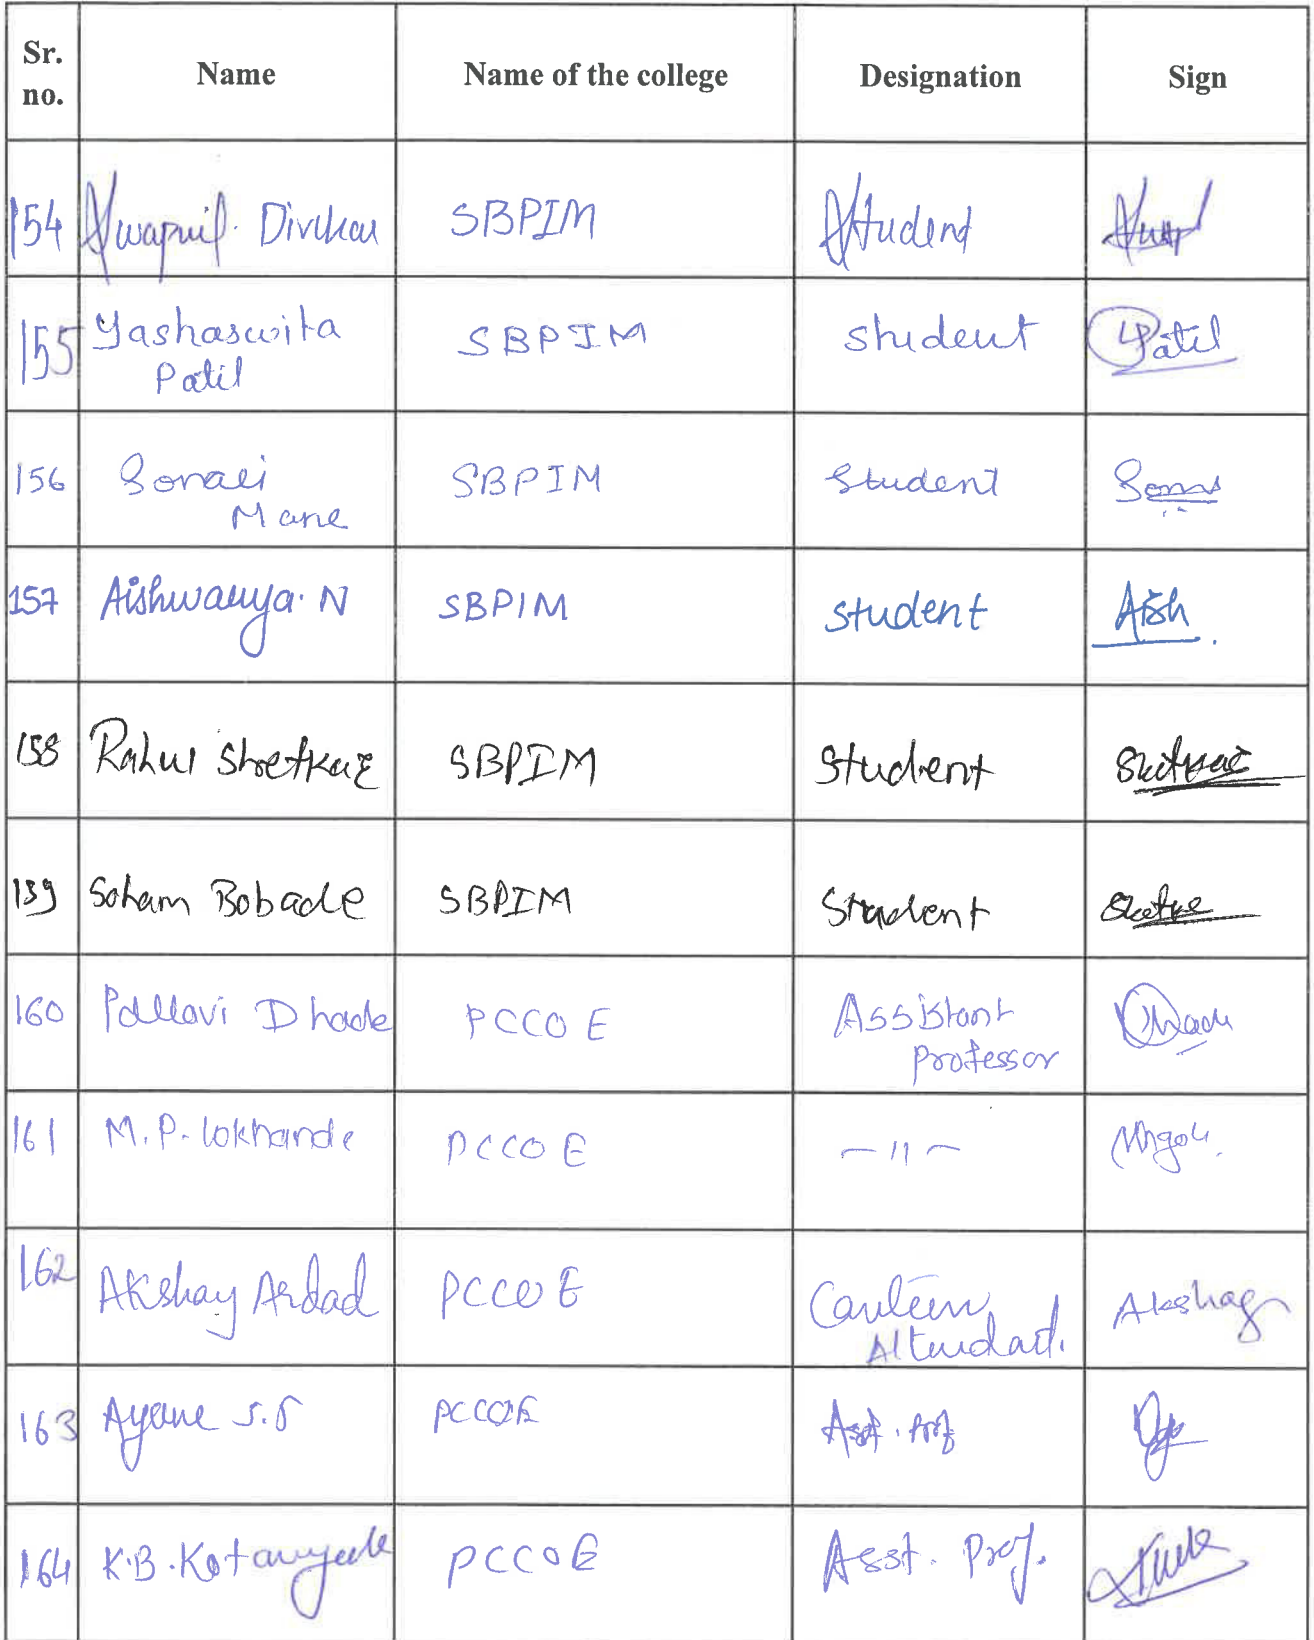 Sr. no. Name Name of the college Designation Sign
154 Swapnil Divekar SBPIM Student
155 Yashaswita Patil SBPIM student Patil
156 Sonali Mane SBPIM Student
157 Aishwarya. N SBPIM student Aish
158 Rahul Shetkar SBPIM Student
159 Soham Bobade SBPIM Student
160 Pallavi Dhade PCCOE Assistant Professor
161 M.P. Lokhande PCCOE -11-
162 Akshay Ardad PCCOE Canteen Attendant. Akshay
163 S.S PCCOE Asst. Prof
164 K.B. PCCOE Asst. Prof.